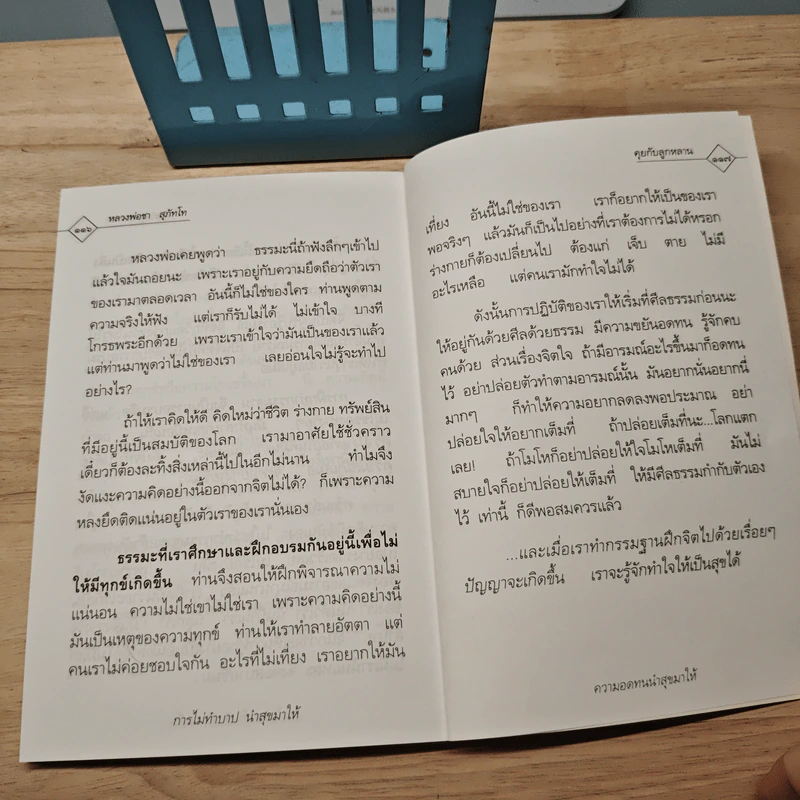 หลวงพ่อชา สุภัทโท
๑๑๖
หลวงพ่อเคยพูดว่า ธรรมะนี่ถ้าฟังลึกๆเข้าไป
แล้วใจมันถอยนะ เพราะเราอยู่กับความยึดถือว่าตัวเรา
ของเรามาตลอดเวลา อันนี้ก็ไม่ใช่ของใคร ท่านพูดตาม
ความจริงให้ฟัง แต่เราก็รับไม่ได้ ไม่เข้าใจ บางที
โกรธพระอีกด้วย เพราะเราเข้าใจว่ามันเป็นของเราแล้ว
แต่ท่านมาพูดว่าไม่ใช่ของเรา เลยอ่อนใจไม่รู้จะทำไป
อย่างไร?
ถ้าให้เราคิดให้ดี คิดใหม่ว่าชีวิต ร่างกาย ทรัพย์สิน
ที่มีอยู่นี้เป็นสมบัติของโลก เรามาอาศัยใช้ชั่วคราว
เดี๋ยวก็ต้องละทิ้งสิ่งเหล่านี้ไปในอีกไม่นาน ทำไมจึง
งัดแงะความคิดอย่างนี้ออกจากจิตไม่ได้? ก็เพราะความ
หลงยึดติดแน่นอยู่ในตัวเราของเรานั่นเอง
ธรรมะที่เราศึกษาและฝึกอบรมกันอยู่นี้เพื่อไม่
ให้มีทุกข์เกิดขึ้น ท่านจึงสอนให้ฝึกพิจารณาความไม่
แน่นอน ความไม่ใช่เขาไม่ใช่เรา เพราะความคิดอย่างนี้
มันเป็นเหตุของความทุกข์ ท่านให้เราทำลายอัตตา แต่
คนเราไม่ค่อยชอบใจกัน อะไรที่ไม่เที่ยง เราอยากให้มัน
การไม่ทำบาป นำสุขมาให้
คุยกับลูกหลาน
๑๑๗
เที่ยง อันนี้ไม่ใช่ของเรา เราก็อยากให้เป็นของเรา
พอจริงๆ แล้วมันก็เป็นไปอย่างที่เราต้องการไม่ได้หรอก
ร่างกายก็ต้องเปลี่ยนไป ต้องแก่ เจ็บ ตาย ไม่มี
อะไรเหลือ แต่คนเรามักทำใจไม่ได้
ดังนั้นการปฏิบัติของเราให้เริ่มที่ศีลธรรมก่อนนะ
ให้อยู่กันด้วยศีลด้วยธรรม มีความขยันอดทน รู้จักคบ
คนด้วย ส่วนเรื่องจิตใจ ถ้ามีอารมณ์อะไรขึ้นมาก็อดทน
ไว้ อย่าปล่อยตัวทำตามอารมณ์นั้น มันอยากนั่นอยากนี่
มากๆ ก็ทำให้ความอยากลดลงพอประมาณ อย่า
ปล่อยใจให้อยากเต็มที่ ถ้าปล่อยเต็มที่นะ...โลกแตก
เลย! ถ้าโมโหก็อย่าปล่อยให้ใจโมโหเต็มที่ มันไม่
สบายใจก็อย่าปล่อยให้เต็มที่ ให้มีศีลธรรมกำกับตัวเอง
ไว้ เท่านี้ ก็ดีพอสมควรแล้ว
...และเมื่อเราทำกรรมฐานฝึกจิตไปด้วยเรื่อยๆ
ปัญญาจะเกิดขึ้น เราจะรู้จักทำใจให้เป็นสุขได้
ความอดทนนำสุขมาให้